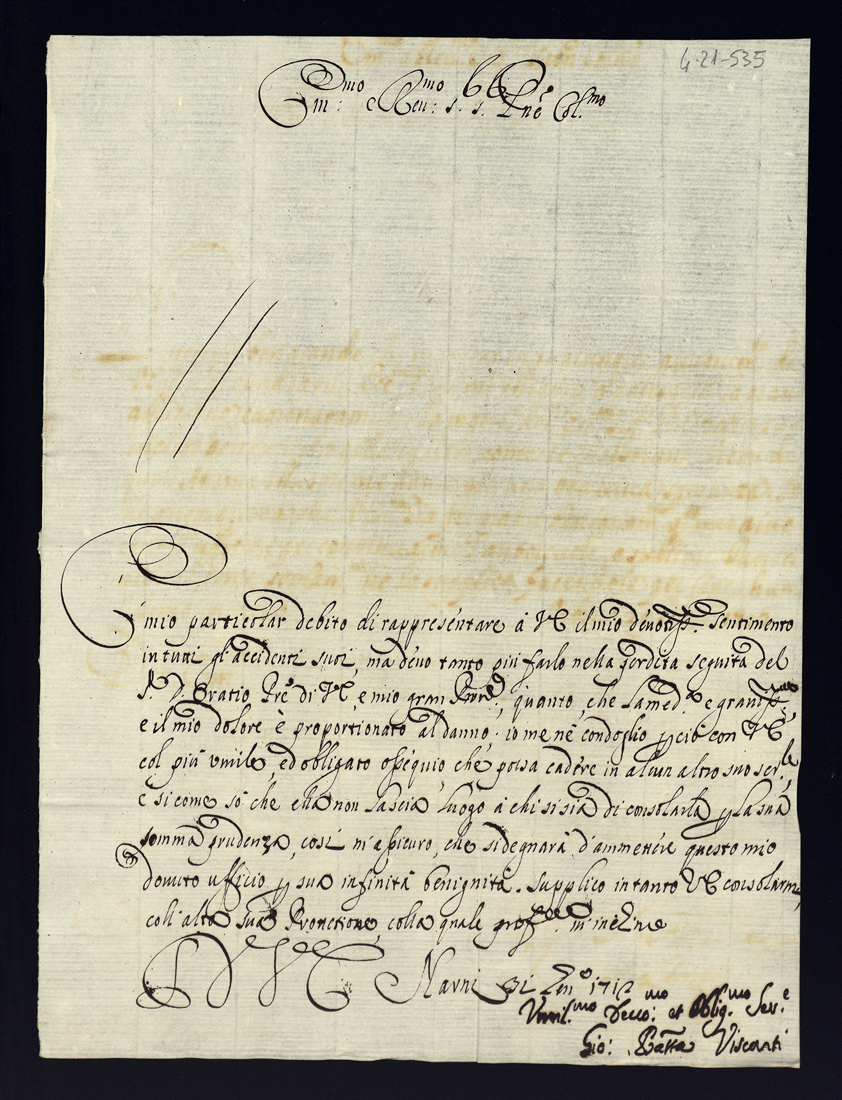 4-21-535
Em:mo e Reu:mo s. s. Pne Col.mo
È mio particolar debito di rappresentare à VE il mio deuotiss.o sentimento
in tutti gl'accidenti suoi, ma deuo tanto più farlo nella perdita seguita del
S. D. Oratio Pre di VE, e mio gran Prone, quanto, che la med.a e grandiss.ma
e il mio dolore è proportionato al danno. io me ne condoglio p ciò con VE
col più umile, ed obligato ossequio che possa cadere in alcun altro suo ser.le,
e si come sò che ella non lascia luogo à chi si sia di consolarla p la sua
somma prudenza, così m'assicuro, che si degnarà d'ammettere questo mio
douuto ufficio p sua infinità benignità. Supplico intanto VE consolarmi
coll'alta sua Protettione, colla quale prof.te m'inclino
D V E Narni 31 Gen.o 1712
Vmil.mo Deuo:mo et Oblig.mo Ser.e
Gio: Batta Visconti